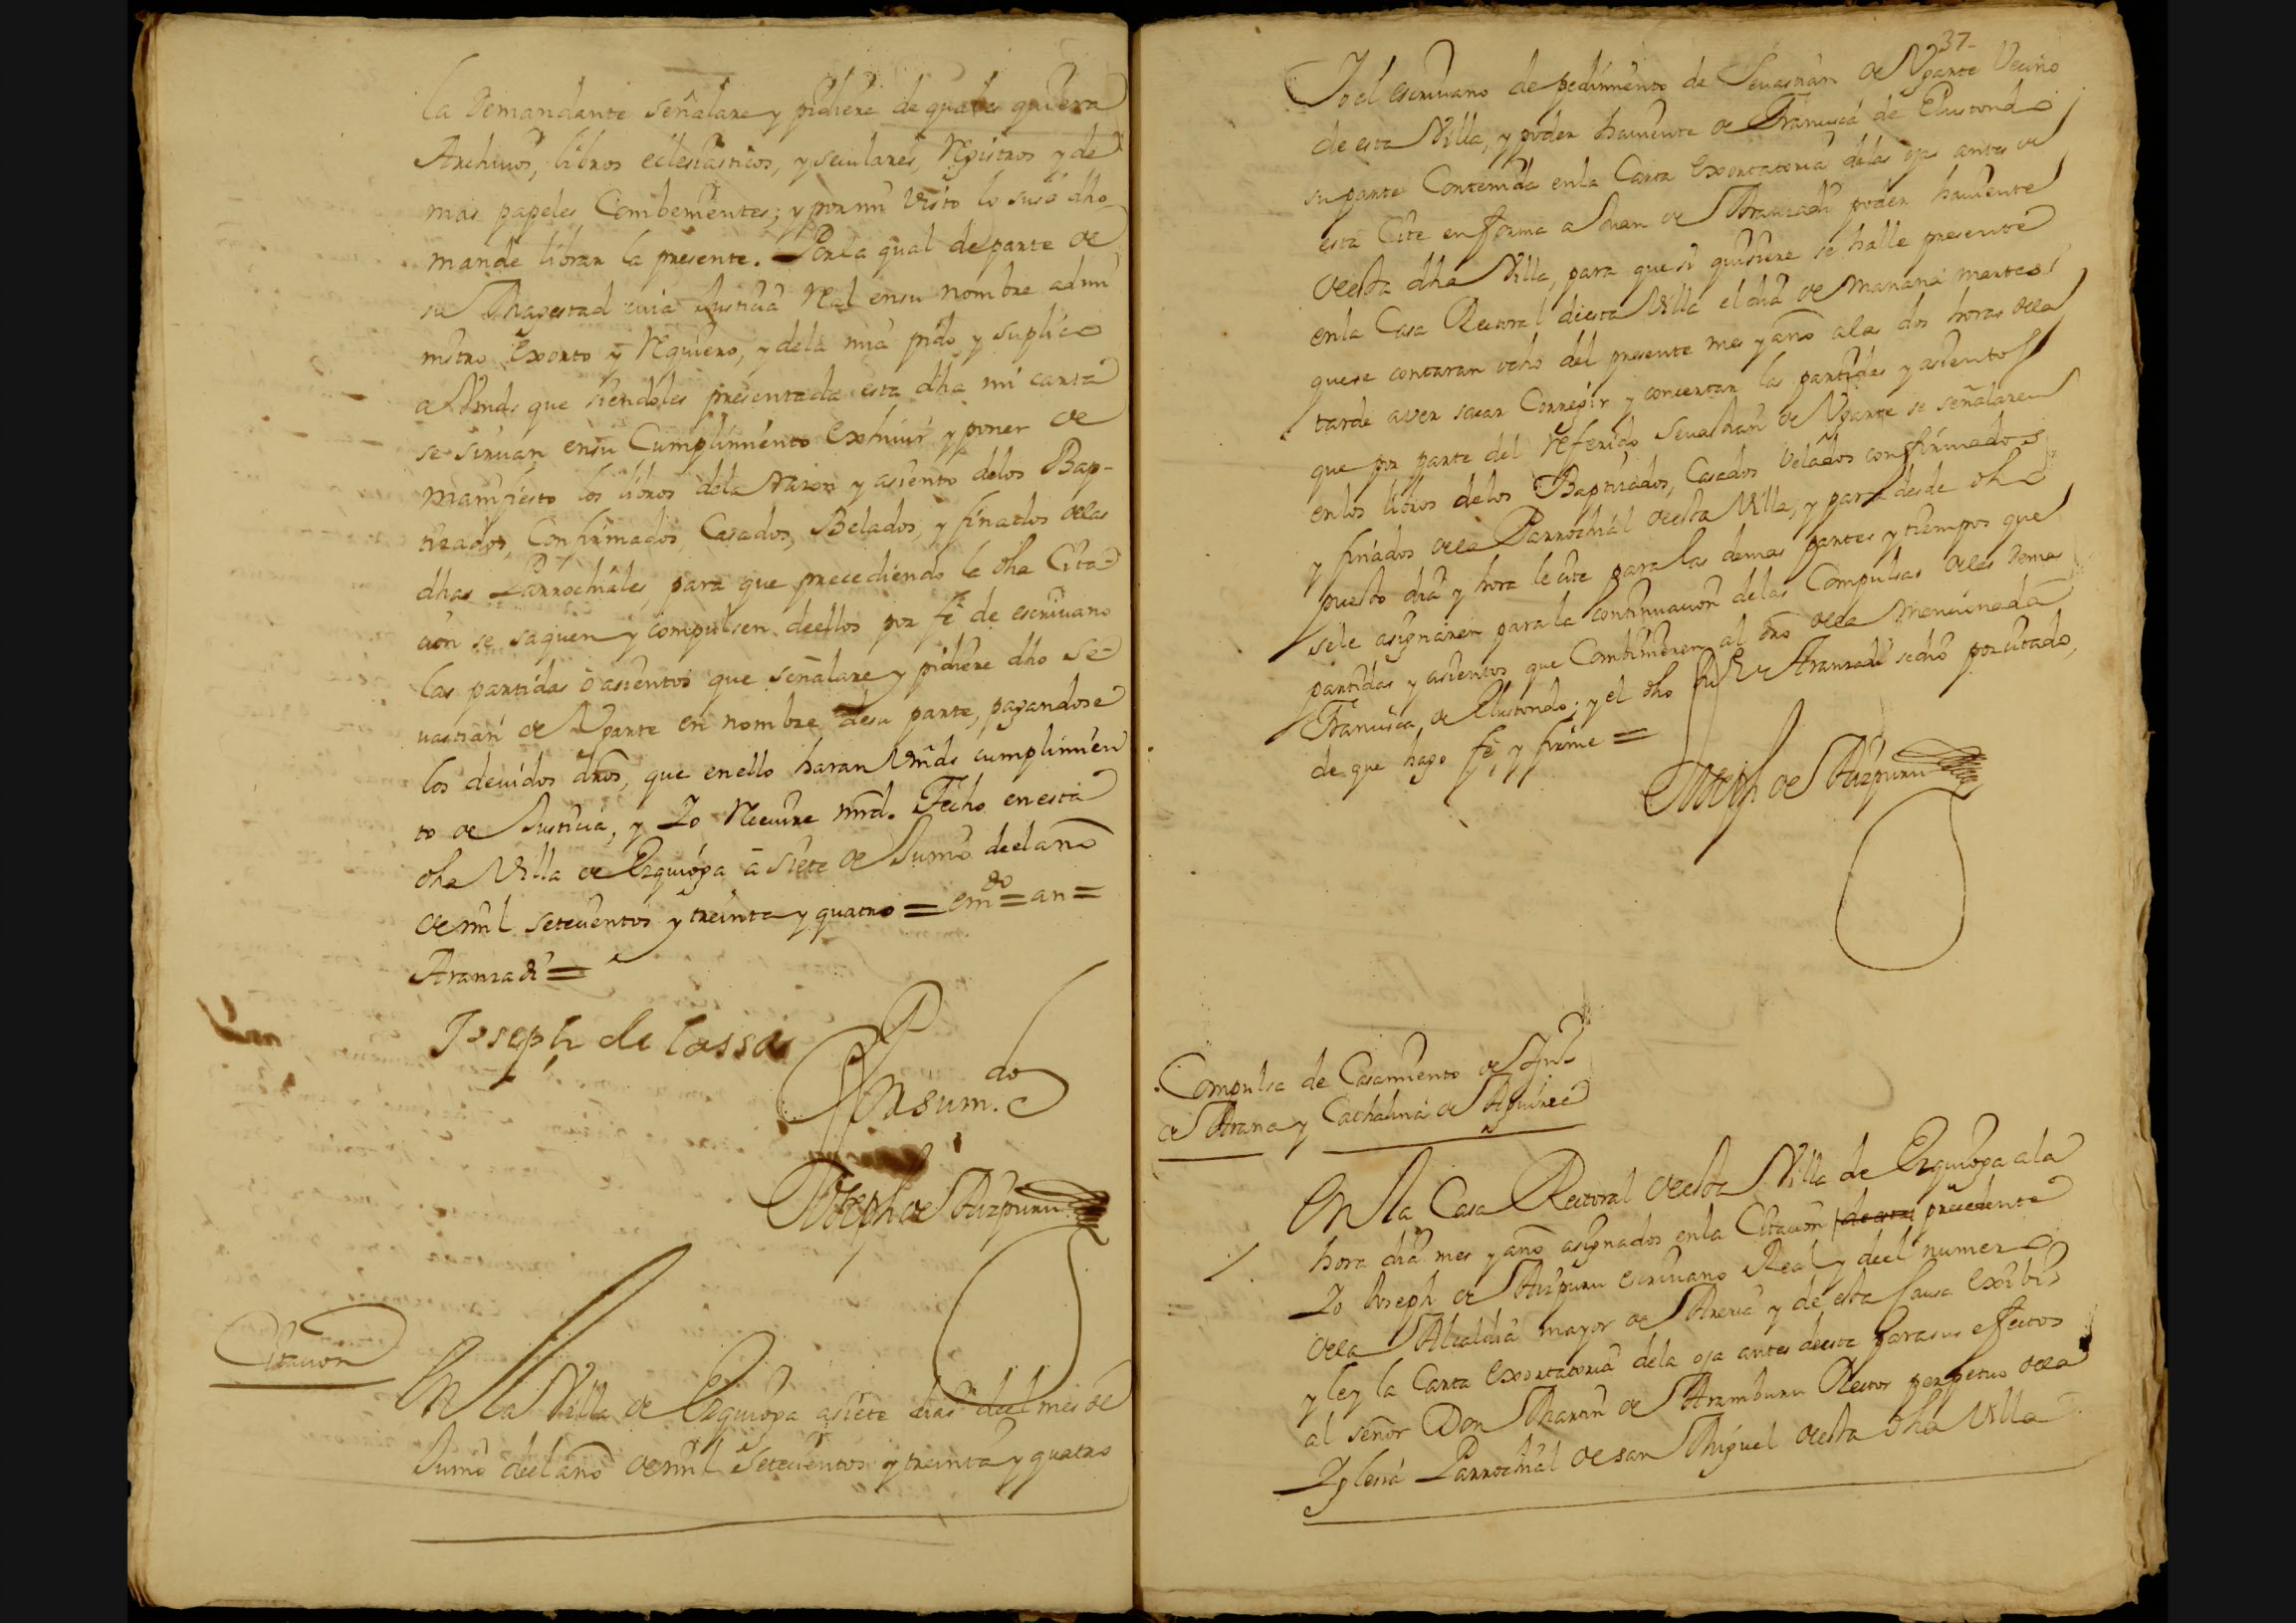 la demandante señalare y pidiere de quales quiera
Archivos, libros eclesiasticos, y seculares, Registros y de
mas papeles Combenientes; y por mi visto lo suso dho
mande librar la presente. Por la qual de parte de
su Magestad cuia Justicia Real en su nombre admi
nistro Exorto y Requiero, y de la mia pido y suplico
a Vmds que siendoles presentada esta dha mi carta
se sirvan en su Cumplimiento Exhivir y poner de
manifiesto los libros de la razon y asiento de los Bap-
tizados, Confirmados, Casados, Belados, y finados de las
dhas Parrochiales, para que precediendo la dha Cita-
cion se saquen y compulsen de ellos por fe de escrivano
las partidas o asientos que señalare y pidiere dho Se-
vastian de Ugarte en nombre de su parte, pagandose
los devidos dros, que en ello haran Vmds cumplimien
to de Justicia, y Yo Recivire mrd. Fecho en esta
dha Villa de Ezquioga a siete de Junio de el año
de mil setecientos y treinta y quatro = emdo = an =
Aranzadi =
Joseph de lassa
Por su m.do
Joseph de Aizpuru
Citacion
En la Villa de Ezquioga a siete dias del mes de
Junio de el año de mil Setecientos y treinta y quatro
37
Yo el escrivano de pedimiento de Sevastian de Ugarte Vecino
de esta Villa, y poder haviente de Francisca de Elustondo
su parte Contenida en la Carta Exortatoria de las ojas antes de
esta Cite en forma a Juan de Aranzadi poder haviente
de esta dha Villa, para que si quisiere se halle presente
en la Casa Rectoral de esta Villa el dia de mañana martes
que se contaran ocho del presente mes y año a las dos horas de la
tarde a ver sacar Corregir y concertar las partidas y asientos
que por parte del referido Sevastian de Ugarte se señalaren
en los libros de los Baptizados, Casados Velados confirmados
y finados de la Parrochial de esta Villa, y para desde dho
puesto dia y hora le cite para las demas partes y tiempos que
se le asignaren para la continuacion de las Compulsas de las demas
partidas y asientos que Combinieren al dro de la mencionada
Francisca de Elustondo; y el dho Juan de Aranzadi se dio por citado,
de que hago fe, y firme =
Joseph de Aizpuru
Compulsa de Casamiento de
de Arana y Cathalina de Aguirre
En la Casa Rectoral de esta Villa de Ezquioga a la
hora dia mes y año asignados en la Citacion precedente
Yo Joseph de Aizpuru escrivano Real y de el numero
de la Alcaldia mayor de Areria y de esta Causa Exibi
y ley la Carta Exortatoria de la oja antes de esta para sus efectos
al señor Don Martin de Aramburu Rector perpetuo de la
Yglesia Parrochial de san Miguel de esta dha Villa